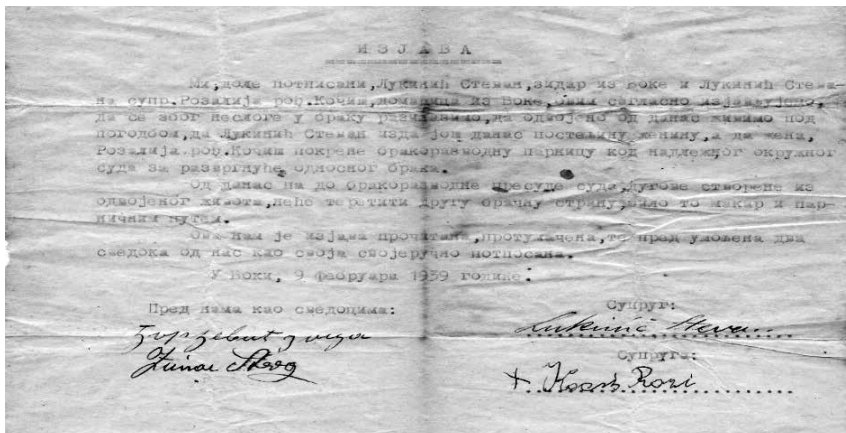 И З Ј А В А
Ми, доле потписани, Лукинић Стеван, зидар из Боке и Лукинић Стева-
на супр. Розалија рођ. Кочиш, домаћица из Боке, овим сагласно изјављујемо,
да се због неслоге у браку разилазимо, да одвојено од данас живимо под
погодбом, да Лукинић Стеван изда још данас постељину женину, а да жена,
Розалија рођ. Кочиш покрене бракоразводну парницу код надлежног окружног
суда за развргнуће односног брака.
Од данас па до бракоразводне пресуде суда, дугове створене из
одвојеног живота, неће теретити другу брачну страну, било то макар и пар-
ничним путем.
Ова нам је изјава прочитана, протумачена, те пред умољена два
сведока од нас као своја својеручно потписана.
У Боки, 9 фебруара 1939 године.
Пред нама као сведоцима:
Супруг:
Lukinić Steva
Супруга:
+ Rozi